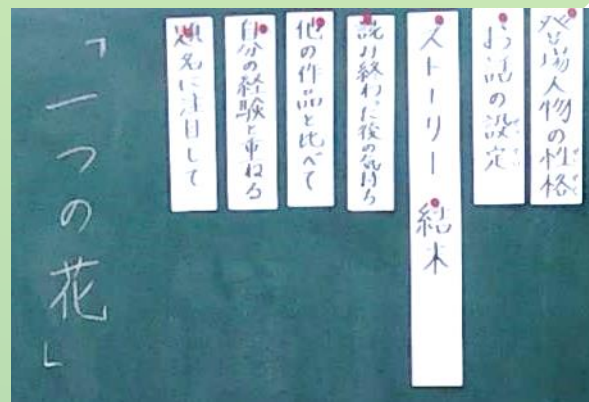 登場人物の性格
お話の設定
ストーリー 結末
読み終わった後の気持ち
他の作品と比べて
自分の経験と重ねる
題名に注目して
「一つの花」